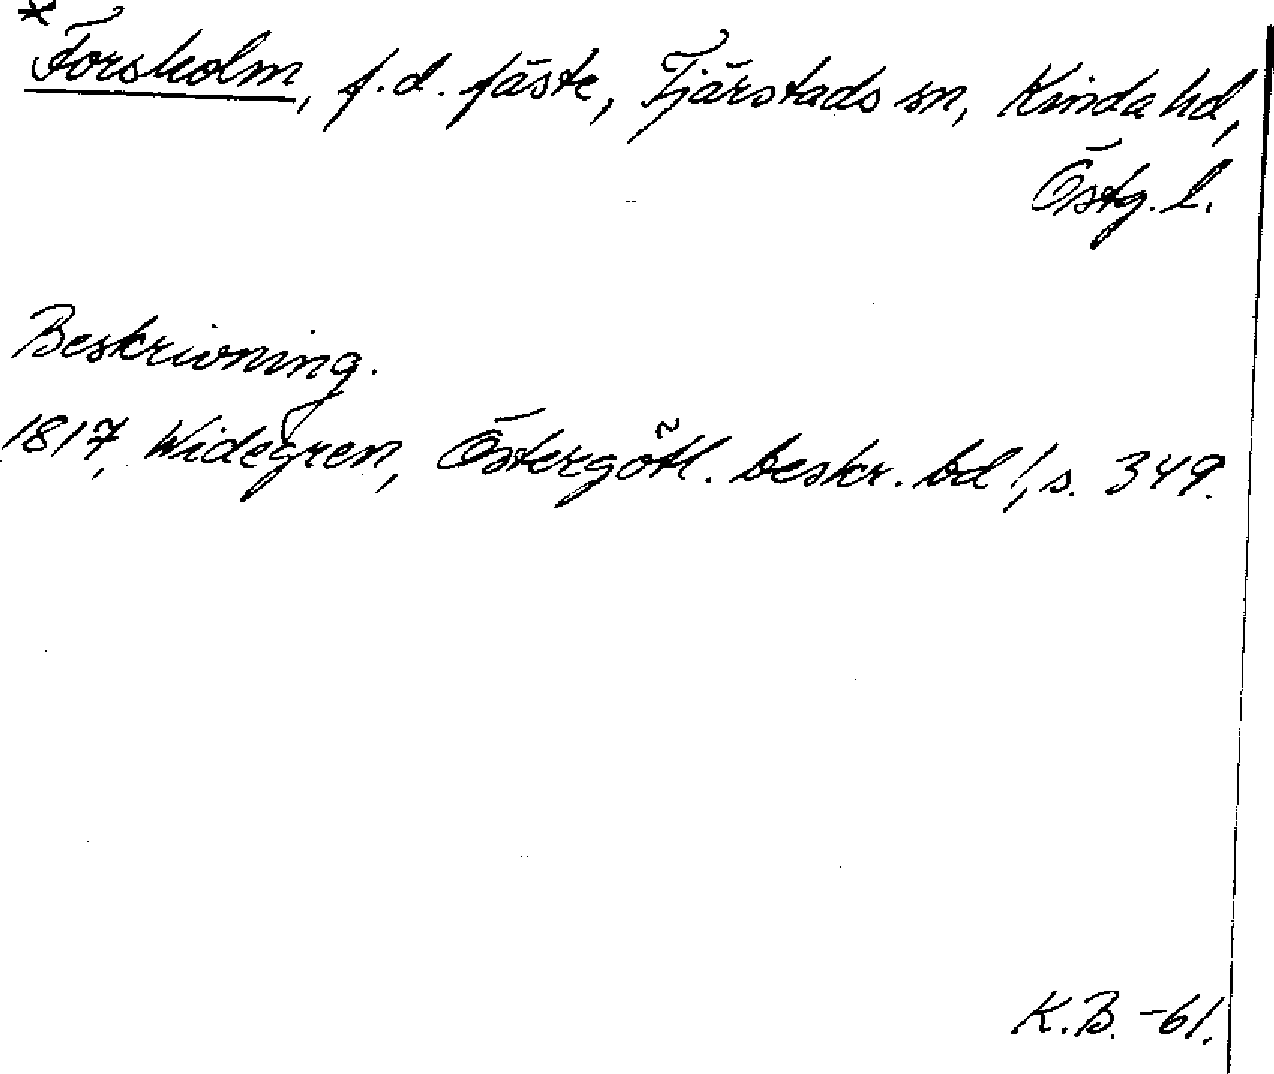 * Forsholm, f.d. fäste, Tjärstads sn, Kinda hd,
Östg. l.
Beskrivning.
1817, Widegren, Östergötl. beskr. bd 1, s. 349.
K.B. -61.